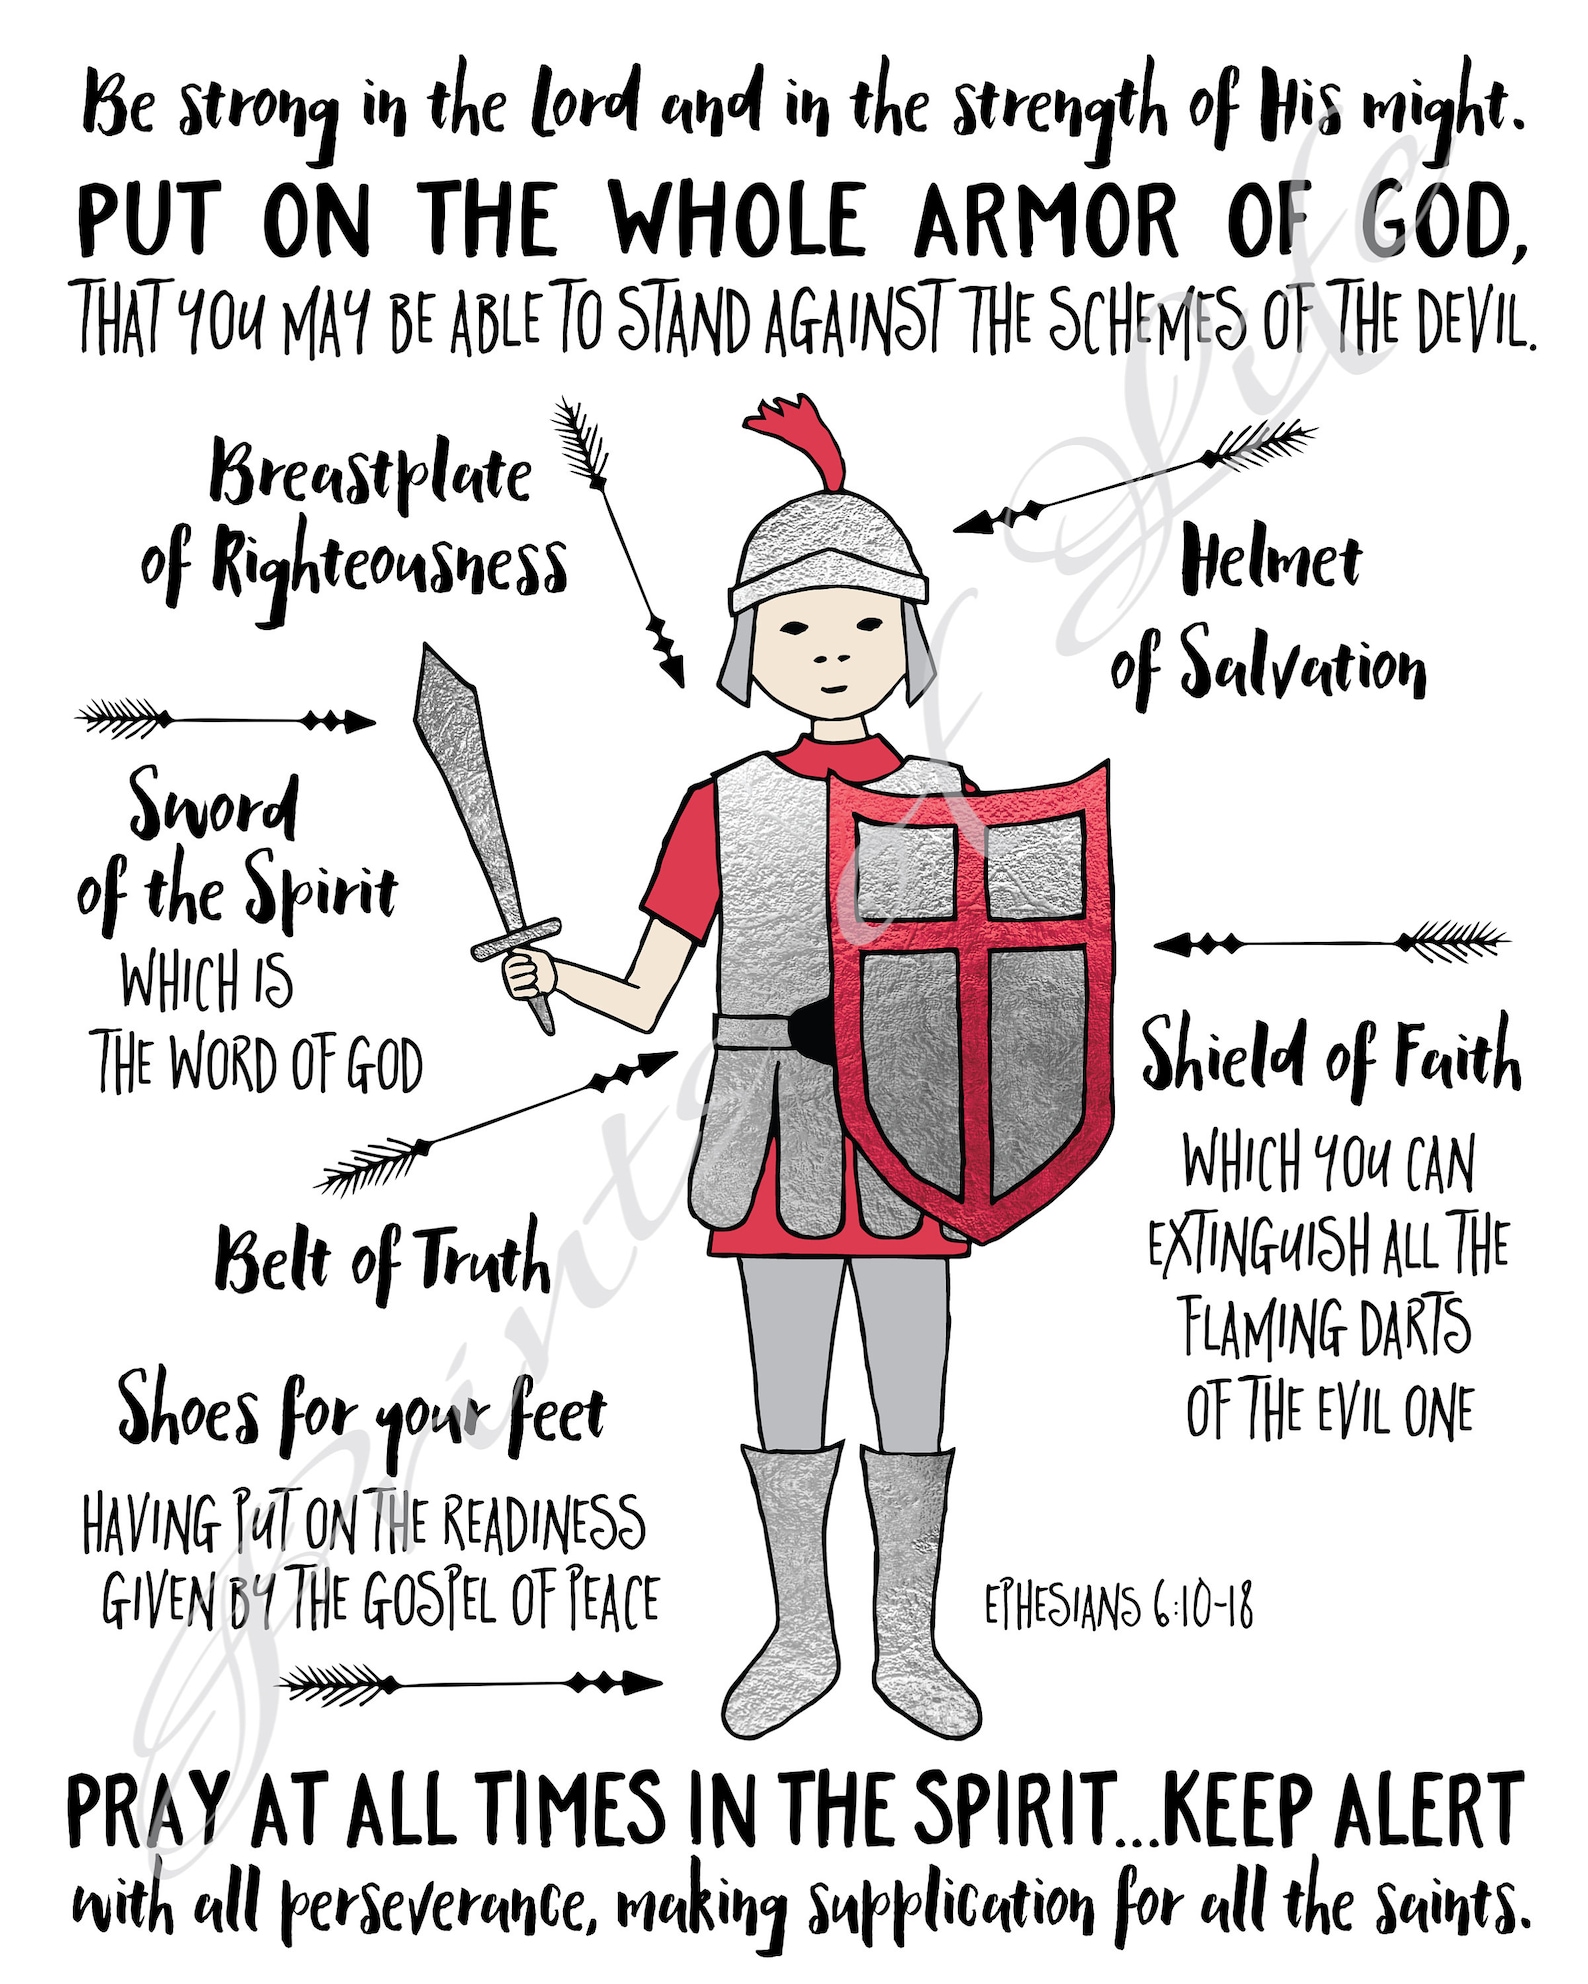 Be strong in the Lord and in the strength of His might.
PUT ON THE WHOLE ARMOR OF GOD,
THAT YOU MAY BE ABLE TO STAND AGAINST THE SCHEMES OF THE DEVIL.
Breastplate
of Righteousness
Helmet
of Salvation
Sword
of the Spirit
WHICH IS
THE WORD OF GOD
Shield of Faith
WHICH YOU CAN
EXTINGUISH ALL THE
FLAMING DARTS
OF THE EVIL ONE
Belt of Truth
Shoes for your feet
HAVING PUT ON THE READINESS
GIVEN BY THE GOSPEL OF PEACE
EPHESIANS 6:10-18
PRAY AT ALL TIMES IN THE SPIRIT...KEEP ALERT
with all perseverance, making supplication for all the saints.
Prints of Life